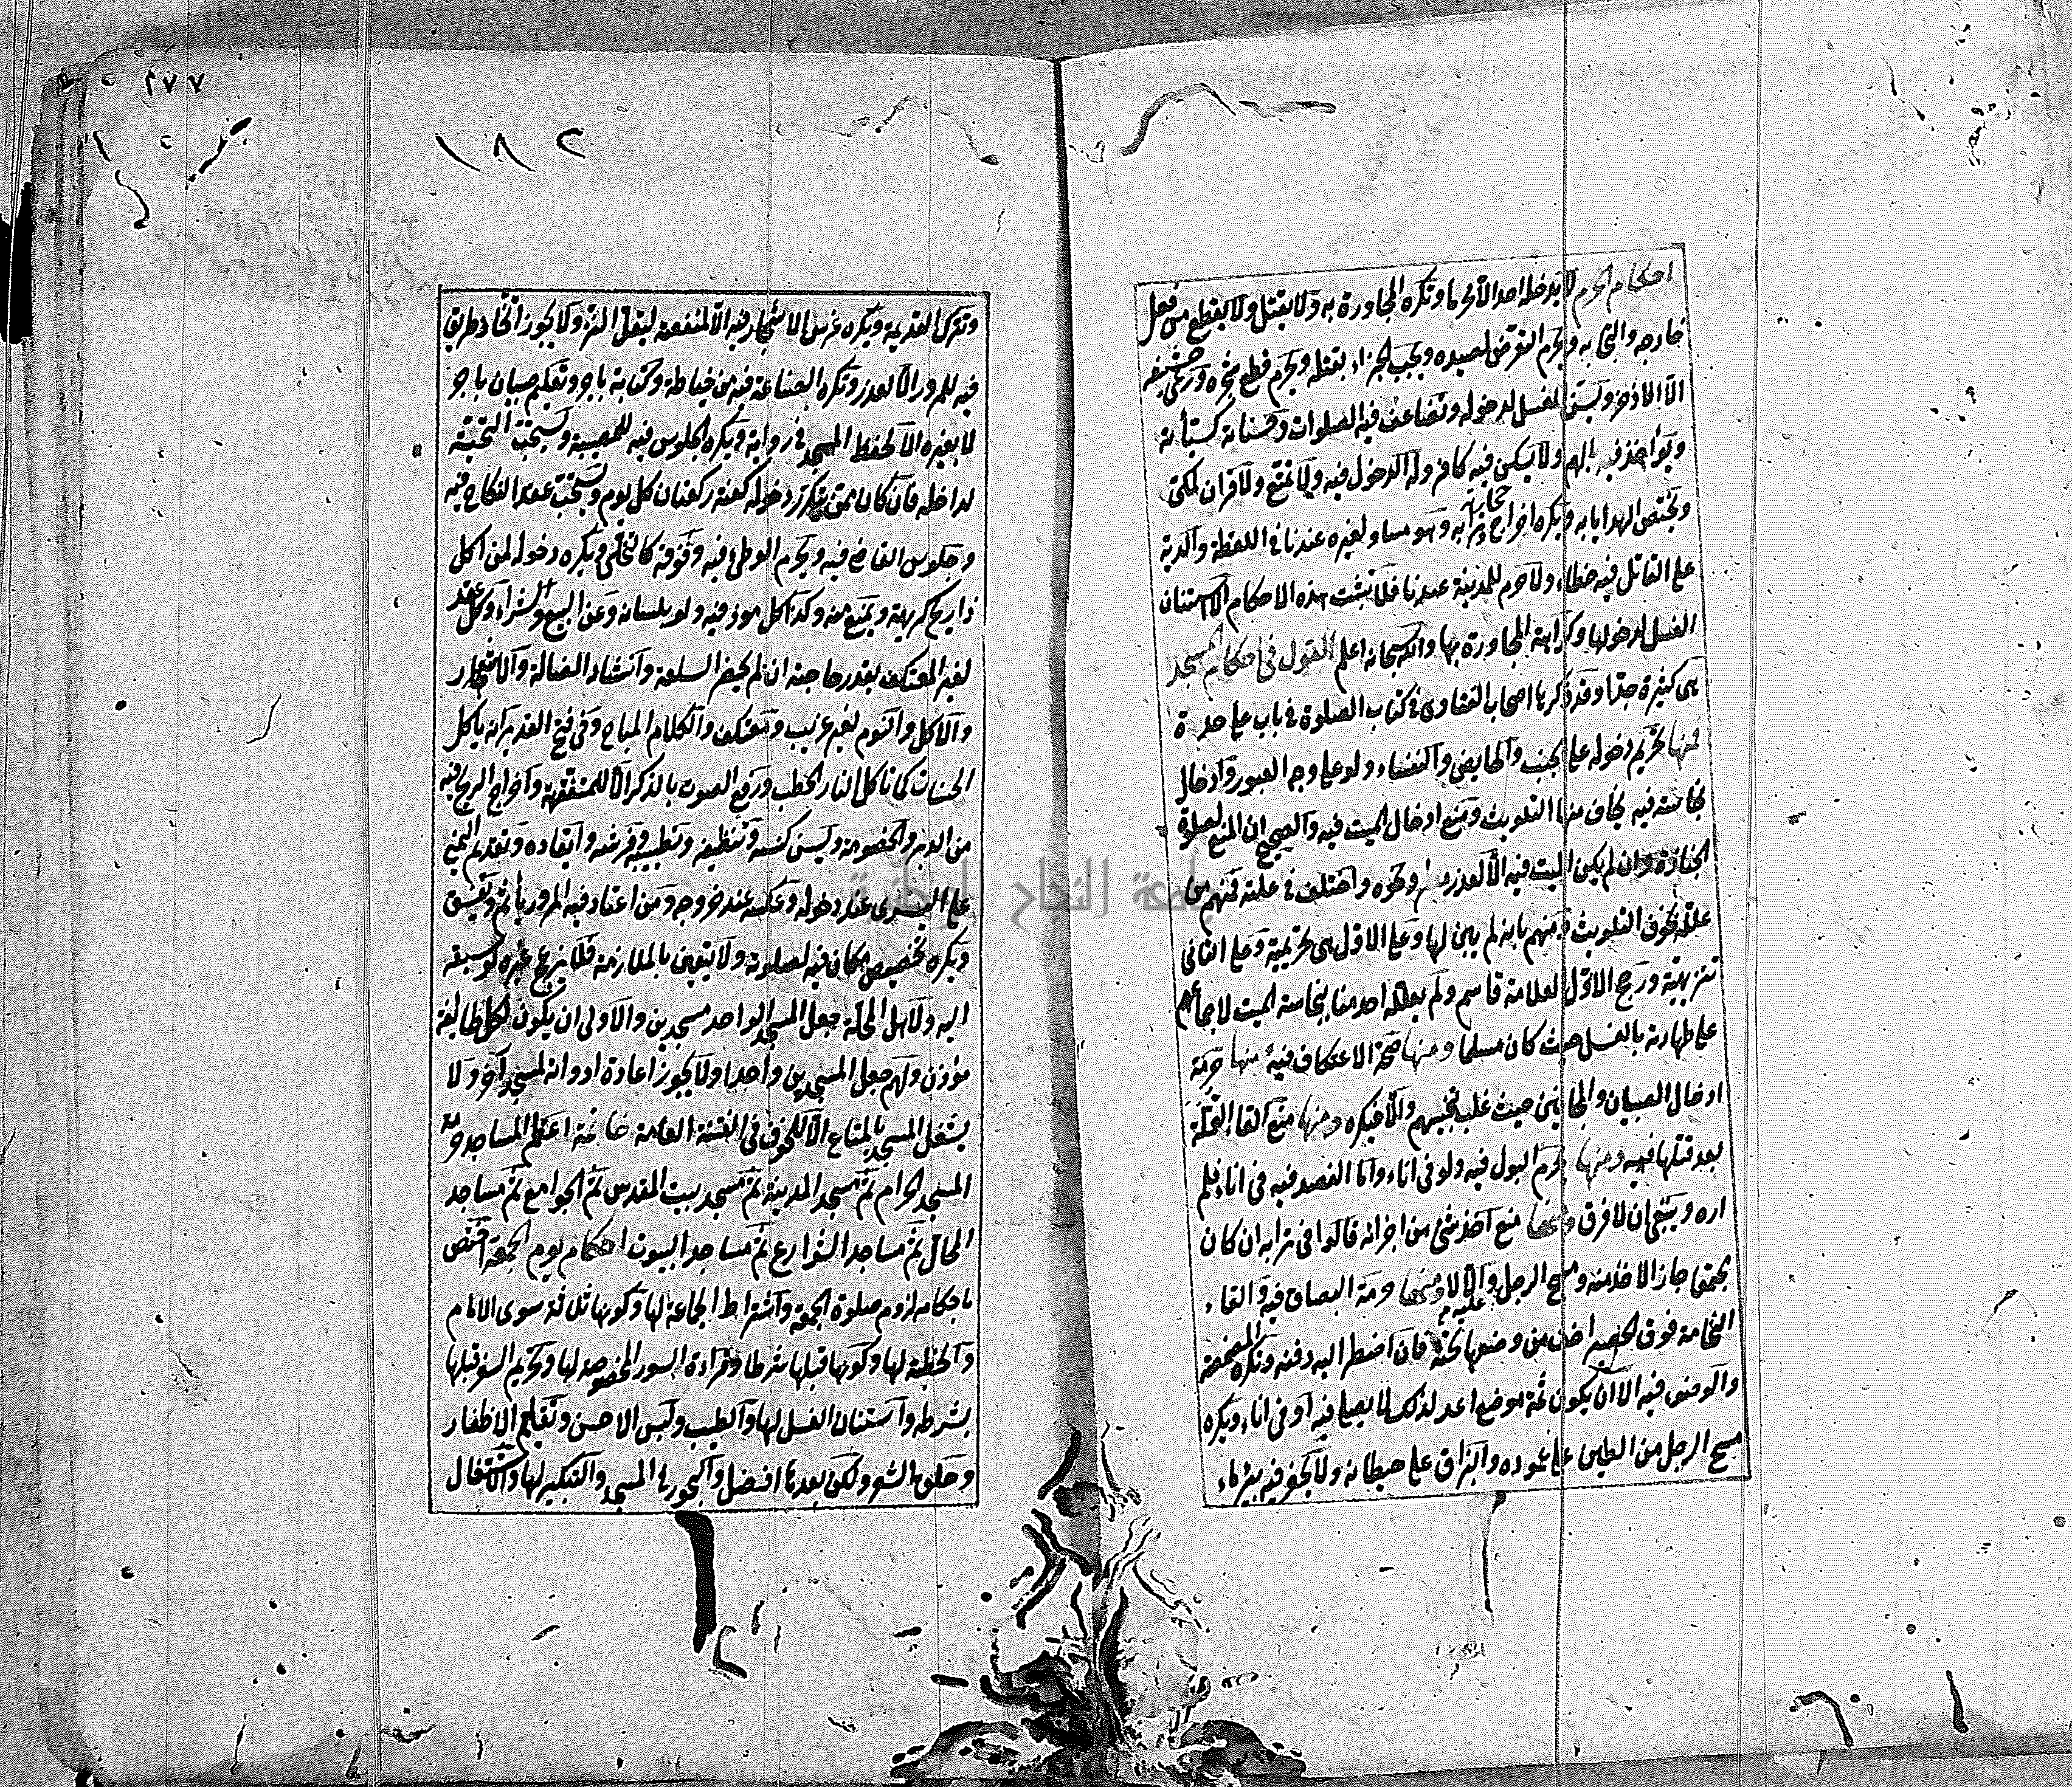 احكام الحرم لا يدخله احد الا محرما وتكره المجاورة به ولا يقتل ولا يقطع من فعل
خارجه والتجا به ويحرم التعرض لصيده ويجب الجزاء بقتله ويحرم قطع شجره ورعي حشيشه
الا الاذخر ويسن الغسل لدخوله وتضاعف فيه الصلوات وحسناته كسيئاته
ويؤاخذ فيه بالهم ولا يسكن فيه كافر وله الدخول فيه ولا تمتع ولا قران لمكي
وتختص الهدايا به ويكره اخراج حجارته وترابه وهو مساو لغيره عندنا في اللقطة والدية
على القاتل فيه خطاء ولا حرم للمدينة عندنا فلا تثبت هذه الاحكام الا استنان
الغسل لدخولها وكراهة المجاورة بها والله سبحانه اعلم القول في احكام المسجد
هي كثيرة جدا وقد ذكرها اصحاب الفتاوى في كتاب الصلوة في باب على حدة
فمنها تحريم دخوله على الجنب والحايض والنفساء ولو على وجه العبور وادخال
نجاسة فيه يخاف منها التلويث ومنع ادخال الميت فيه والصحيح ان المنع لصلوة
الجنازة وان لم يكن الميت فيه الا لعذر مطر ونحوه واختلف في علته فمنهم من
علله بخوف التلويث ومنهم بانه لم يبن لها وعلى الاول هي تحريمية وعلى الثاني
تنزيهية ورجح الاول العلامة قاسم ولم يعلله احد منا بنجاسة الميت لاجماعهم
على طهارته بالغسل حيث كان مسلما ومنها صحة الاعتكاف فيه منها حرمة
ادخال الصبيان والمجانين حيث غلب تنجيسهم والا فيكره ومنها منع القا القملة
بعد قتلها فيه ومنها يحرم البول فيه ولو في اناء واما الفصد فيه في اناء فلم
اره وينبغي ان لا فرق ومنها منع اخذ شئ من اجزائه قالوا في ترابه ان كان
مجتمعا جاز الاخذ منه ومسح الرجل عليه والا لا ومنها حرمة البصاق فيه والقاء
النخامة فوق الحصير اخف من وضعها تحته فان اضطر اليه دفنه وتكره المضمضة
والوضوء فيه الا ان يكون ثمة موضع اعد لذلك لا يصلى فيه او في اناء ويكره
مسح الرجل من الطين على عموده والبزاق على حيطانه ولا يحفر فيه بئر ماء
٢٧٧
١٨٢
وتترك القديمة ويكره غرس الاشجار فيه الا لمنفعة ليقل النز ولا يجوز اتخاذ طريق
فيه للمرور الا لعذر وتكره الصناعة فيه من خياطة وكتابة باجر وتعليم صبيان باجر
لا بغيره الا لحفظ المسجد في رواية ويكره الجلوس فيه للمصيبة وتستحب التحية
لداخله فان كان ممن يتكرر دخوله كفته ركعتان كل يوم ويستحب عقد النكاح فيه
وجلوس القاضي فيه ويحرم الوطئ فيه وفوقه كالتخلي ويكره دخوله لمن اكل
ذا ريح كريهة ويمنع منه وكذا كل موذ فيه ولو بلسانه وعن البيع والشراء وكل عقد
لغير المعتكف بقدر حاجته ان لم يحضر السلعة وانشاد الضالة والاشعار
والاكل والنوم لغير غريب ومعتكف والكلام المباح وفي فتح القدير انه ياكل
الحسنات كما تاكل النار الحطب ورفع الصوت بالذكر الا للمتفقهة واخراج الريح فيه
من الدبر والخصومة ويسن كنسه وتنظيفه وتطييبه وفرشه وايقاده وتقديم اليمنى
على اليسرى عند دخوله وعكسه عند خروجه ومن اعتاد فيه المرور ياثم ويفسق
ويكره تخصيص مكان فيه لصلوته ولا يتعين بالملازمة فلا يزعج غيره لو سبقه
اليه ولاهل المحلة جعل المسجد الواحد مسجدين والاولى ان يكون لكل طايفة
موذن ولهم جعل المسجدين واحدا ولا يجوز اعادة ادواته لمسجد اخر ولا
يشغل المسجد بالمتاع الا للخوف في الفتنة العامة خاتمة اعظم المساجد حرمة
المسجد الحرام ثم مسجد المدينة ثم مسجد بيت المقدس ثم الجوامع ثم مساجد
المحال ثم مساجد الشوارع ثم مساجد البيوت احكام يوم الجمعة اختص
باحكام لزوم صلوة الجمعة واشتراط الجماعة لها وكونها ثلاثة سوى الامام
والخطبة لها وكونها قبلها شرطا وقراءة السور المخصوصة لها وتحريم السفر قبلها
بشرطه واستنان الغسل لها والطيب ولبس الاحسن وتقليم الاظفار
وحلق الشعر ولكن بعدها افضل والبخور في المسجد والتبكير لها والاشتغال
جامعة النجاح الوطنية